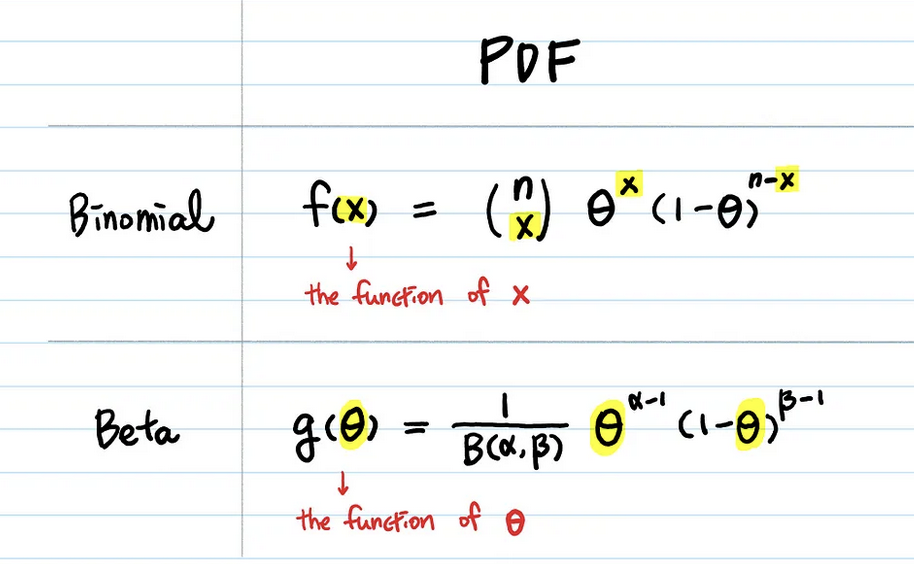 PDF
Binomial f(x) = (n x) θ^x (1-θ)^n-x
↓
the function of x
Beta g(θ) = 1/B(α,β) θ^α-1 (1-θ)^β-1
↓
the function of θ